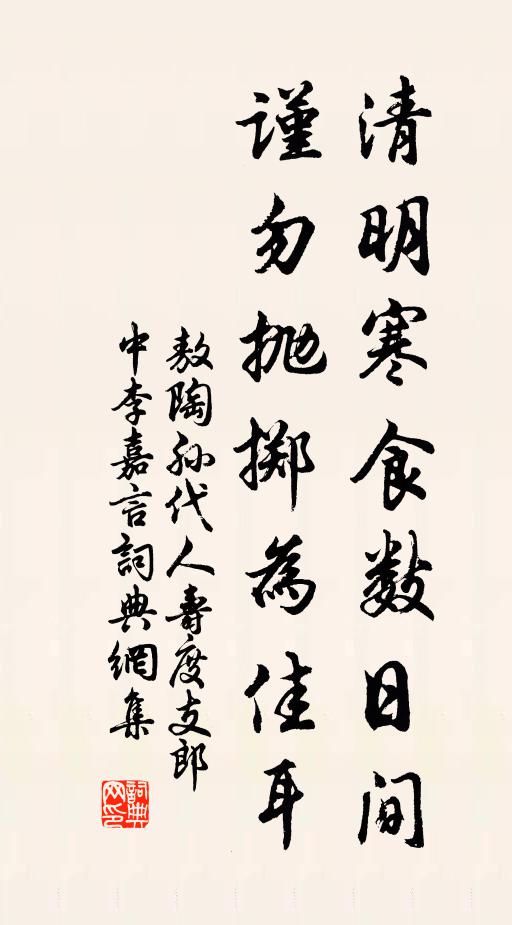 清明寒食数日间
谨勿抛掷為佳耳
敖陶孙代人壽度支郎
中李嘉言詞典網集
詞典网印